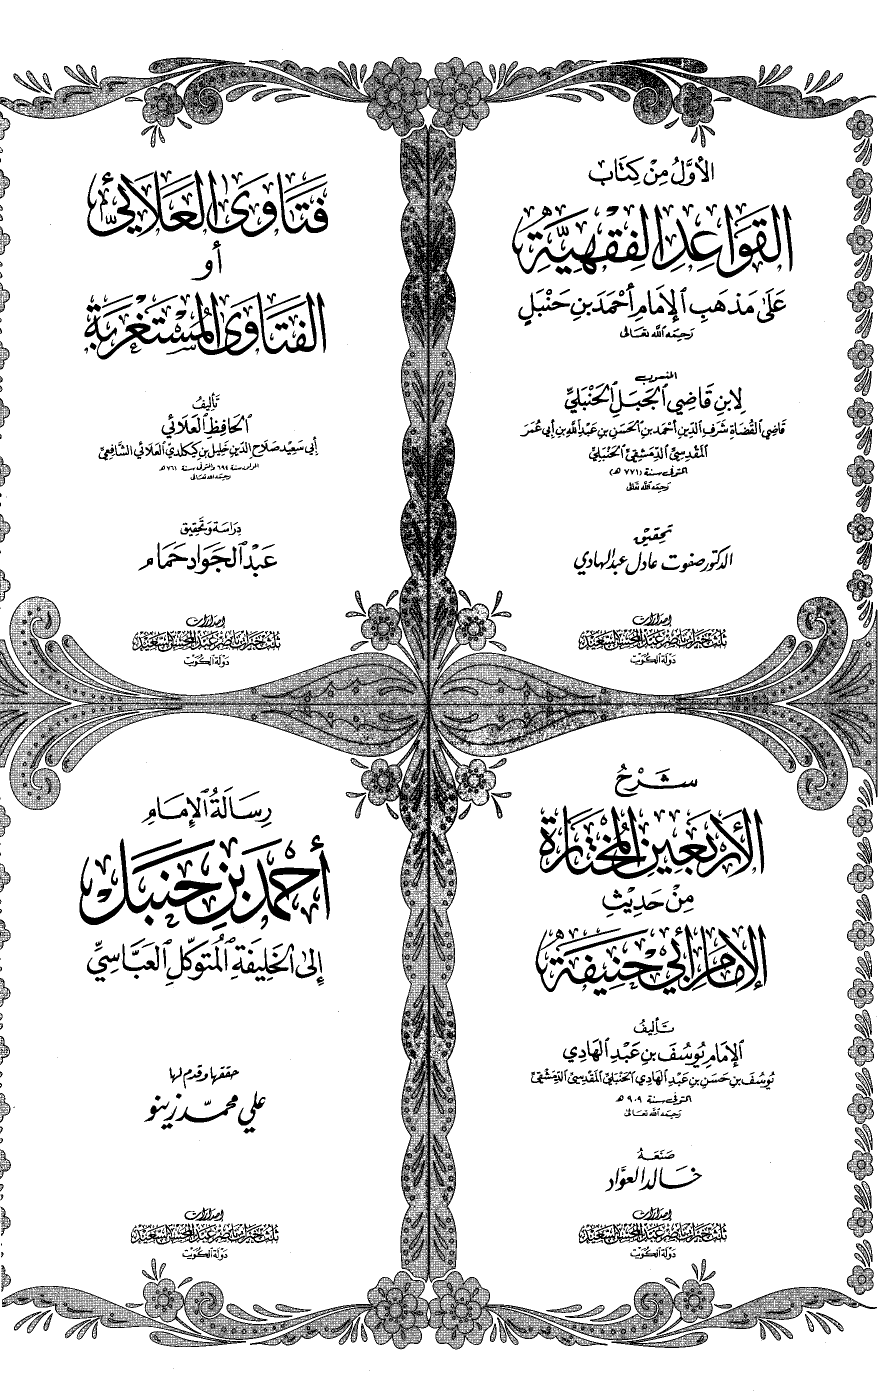 الأوّلُ مِنْ كِتَاب
القَوَاعِدِ الفِقْهِيَّةِ
عَلَىٰ مَذهَبِ الإِمَامِ أَحْمَدَ بنِ حَنْبَلٍ
رَحِمَه الله تَعَالى
المنسوب
لِابنِ قَاضِي الجَبَلِ الحَنْبَليِّ
قَاضِي القُضَاةِ شَرَفِ الدِّينِ أَحمَد بن الحَسَنِ بنِ عَبدِ اللهِ بنِ أبي عُمَر
المَقدِسِيِّ الدِّمَشْقِيِّ الحَنْبَلِيِّ
المتوفى سنة (٧٧١ هـ)
رَحِمَه الله تعَالى
تحقيق
الدكتور صفوت عادل عبد الهادي
إصدارات
دَولَة الكُوَيْت
فَتَاوَى العَلَائِيِّ
أو
الفَتَاوَى المُسْتَغْرَبَة
تَأليفُ
الحَافِظِ العَلَائي
أبي سَعِيد صَلَاح الدِّين خَليل بن كيكلدي العَلَائي الشَّافِعِي
المولود سنة ٦٩٤ والمتوفى سنة ٧٦١ هـ
رَحِمَه الله تعَالى
دِرَاسَة وَتَحقِيق
عَبْد الجَوَاد حَمَام
إصدارات
دَولَة الكُوَيْت
شَرْحُ
الأَرْبَعِينَ المُخْتَارَةِ
مِنْ حَدِيثِ
الإِمَامِ أَبِي حَنِيفَةَ
تَأليفُ
الإِمَامِ يُوسُفَ بنِ عَبْدِ الهَادِي
يُوسُفَ بن حَسَن بنِ عَبْدِ الهَادِي الحَنبَليِّ المَقْدِسِيِّ الدِّمَشْقِيِّ
المتوفى سنة ٩٠٩ هـ
رَحِمَه الله تعَالى
صَنعَة
خَالد العوَّاد
إصدارات
دَولَة الكُوَيْت
رِسَالَةُ الإِمَامِ
أَحْمَدَ بنِ حَنْبَل
إِلىٰ الخَلِيفَةِ المُتَوَكِّلِ العَبَّاسِيِّ
حققها وقدم لها
علي محمّد زينو
إصدارات
دَولَة الكُوَيْت